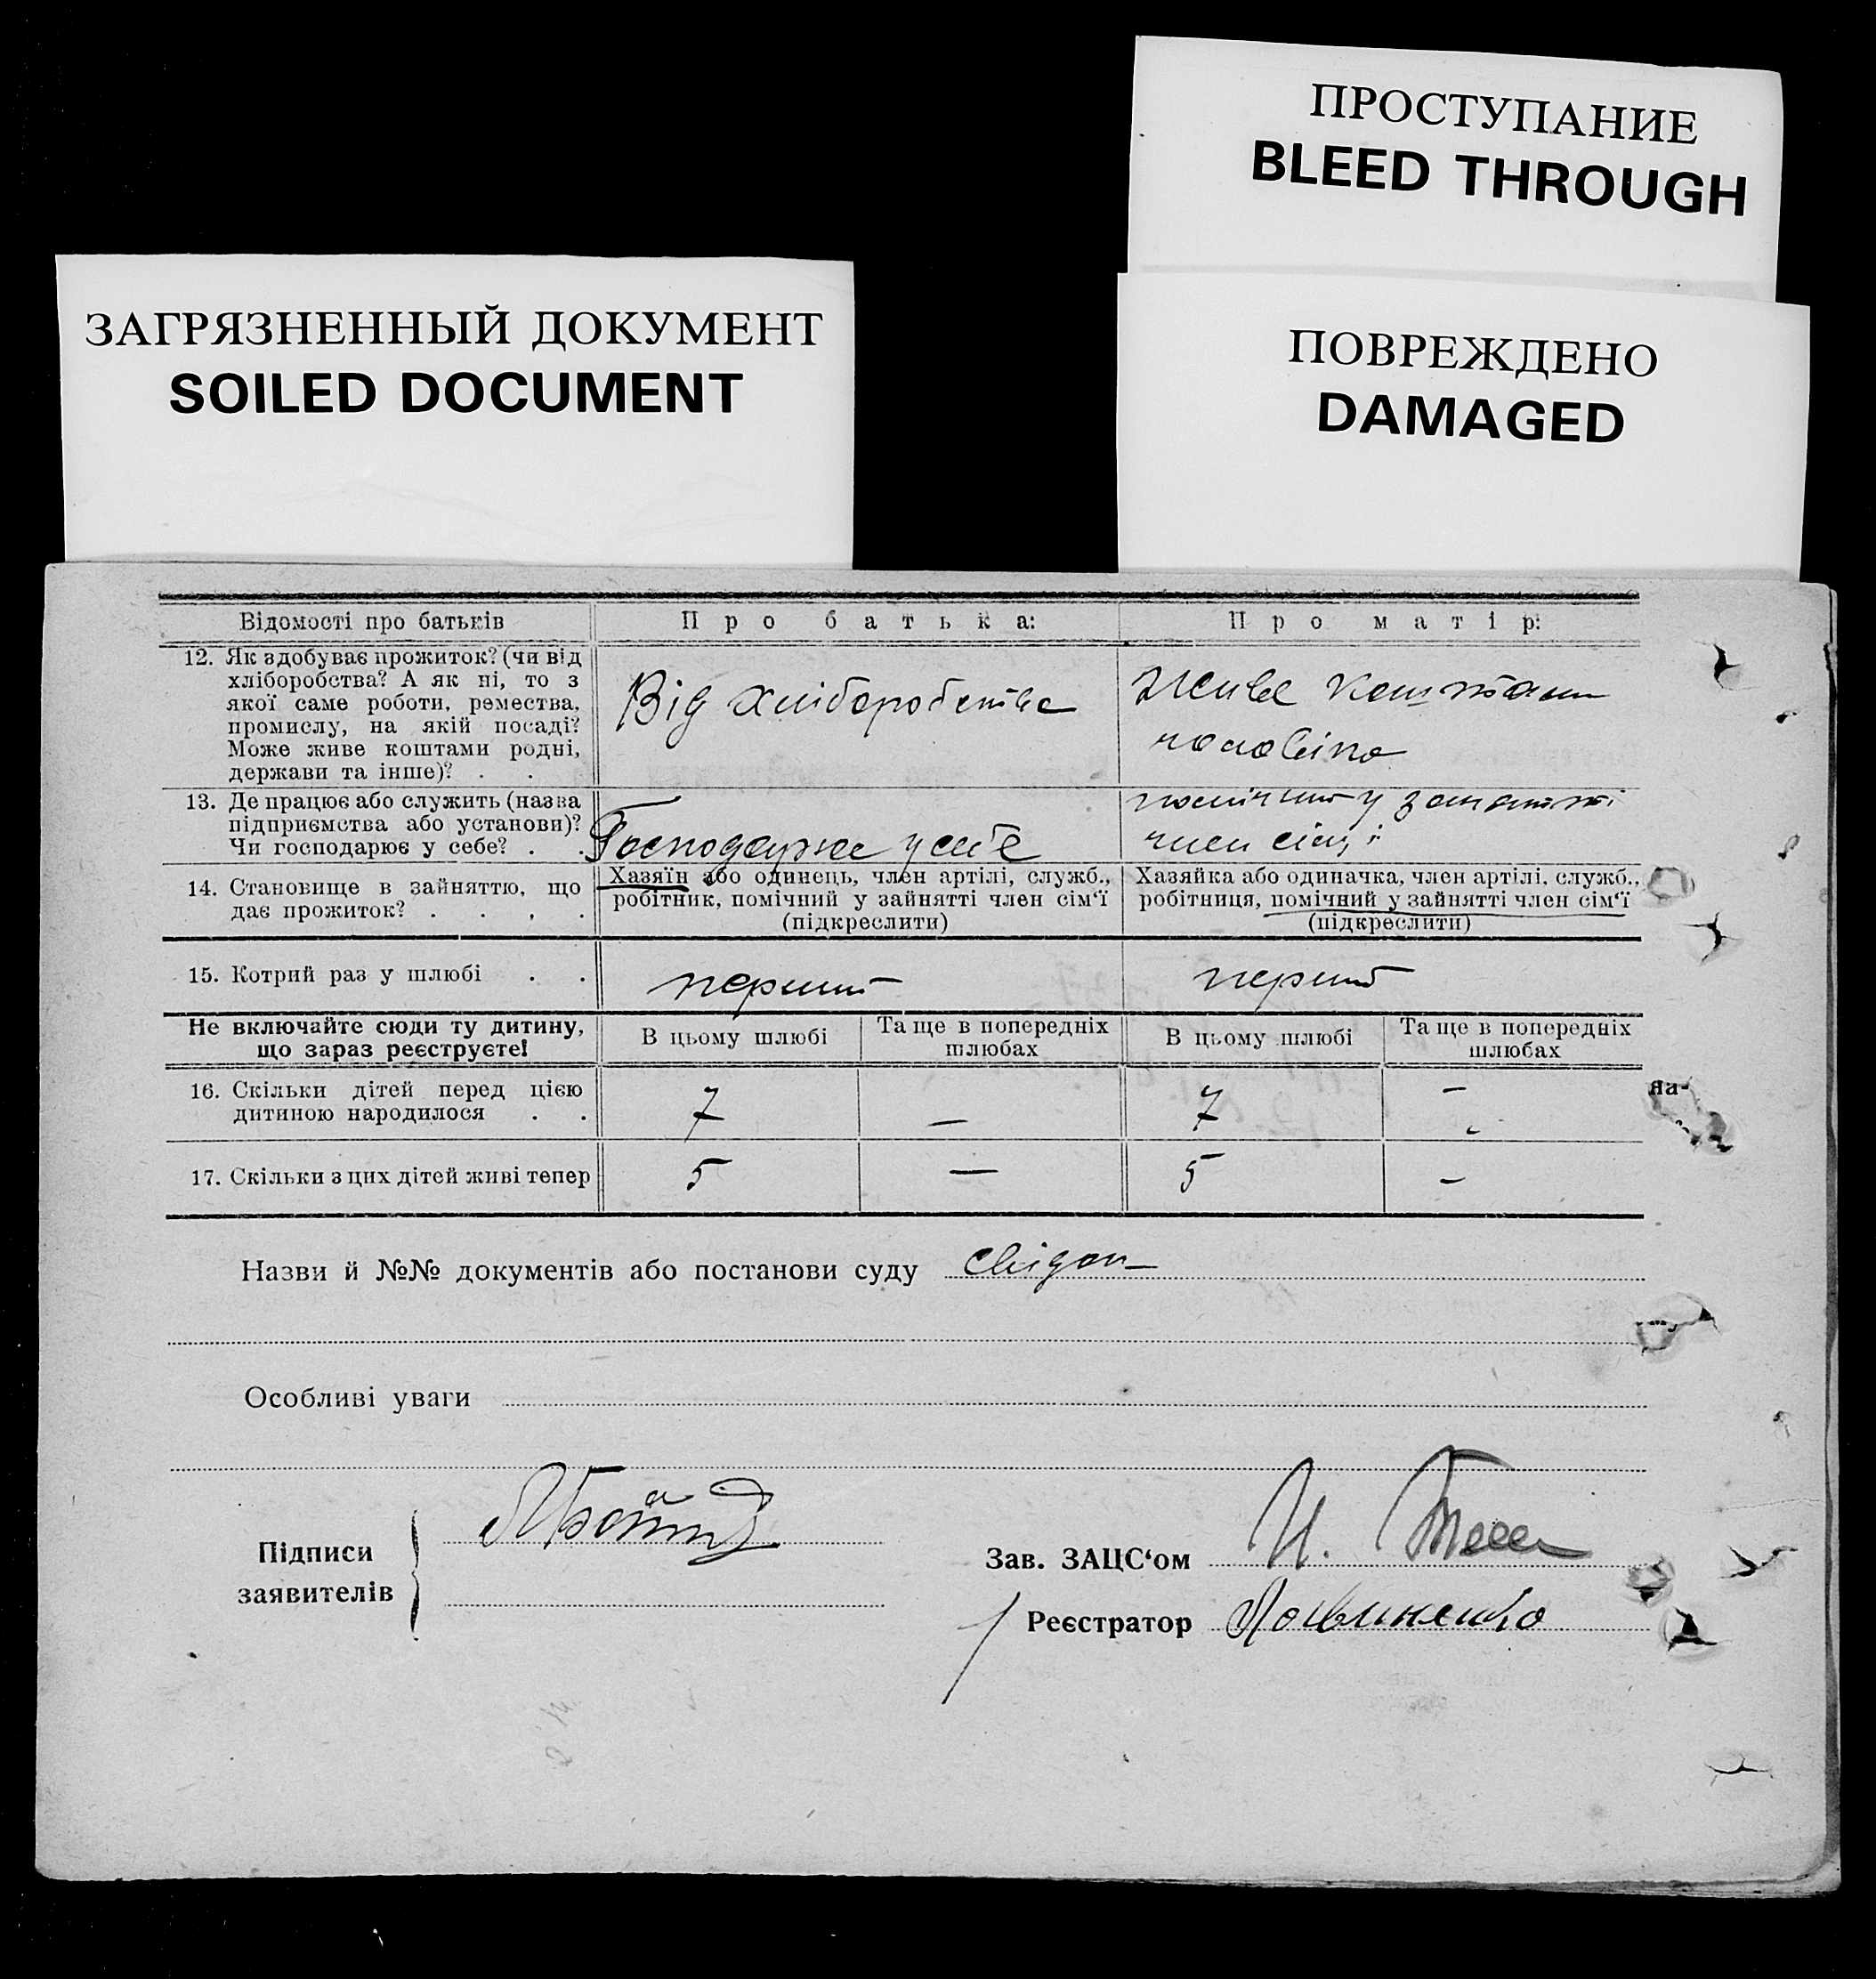 ПРОСТУПАНИЕ
BLEED THROUGH
ЗАГРЯЗНЕННЫЙ ДОКУМЕНТ
SOILED DOCUMENT
ПОВРЕЖДЕНО
DAMAGED
Відомості про батьків
Про батька:
Про матір:
12. Як здобуває прожиток? (чи від
хліборобства? А як ні, то з
якої саме роботи, ремества,
промислу, на якій посаді?
Може живе коштами родні,
держави та інше)? . .
Від хліборобства
живе коштами
чоловіка
13. Де працює або служить (назва
підприємства або установи)?
Чи господарює у себе? . .
Господарює у себе
помічний у занятті
член сімї
14. Становище в зайняттю, що
дає прожиток? . . . .
Хазяїн або одинець, член артілі, служб.,
робітник, помічний у зайнятті член сім‘ї
(підкреслити)
Хазяйка або одиначка, член артілі, служб.,
робітниця, помічний у зайнятті член сім‘ї
(підкреслити)
15. Котрий раз у шлюбі . .
перший
перший
Не включайте сюди ту дитину,
що зараз реєструєте!
В цьому шлюбі
Та ще в попередніх
шлюбах
В цьому шлюбі
Та ще в попередніх
шлюбах
16. Скільки дітей перед цією
дитиною народилося . .
7 — 7 —
17. Скільки з цих дітей живі тепер
5 — 5 —
на-
Назви й №№ документів або постанови суду
Особливі уваги
Підписи
заявителів
Зав. ЗАЦС‘ом
Реєстратор